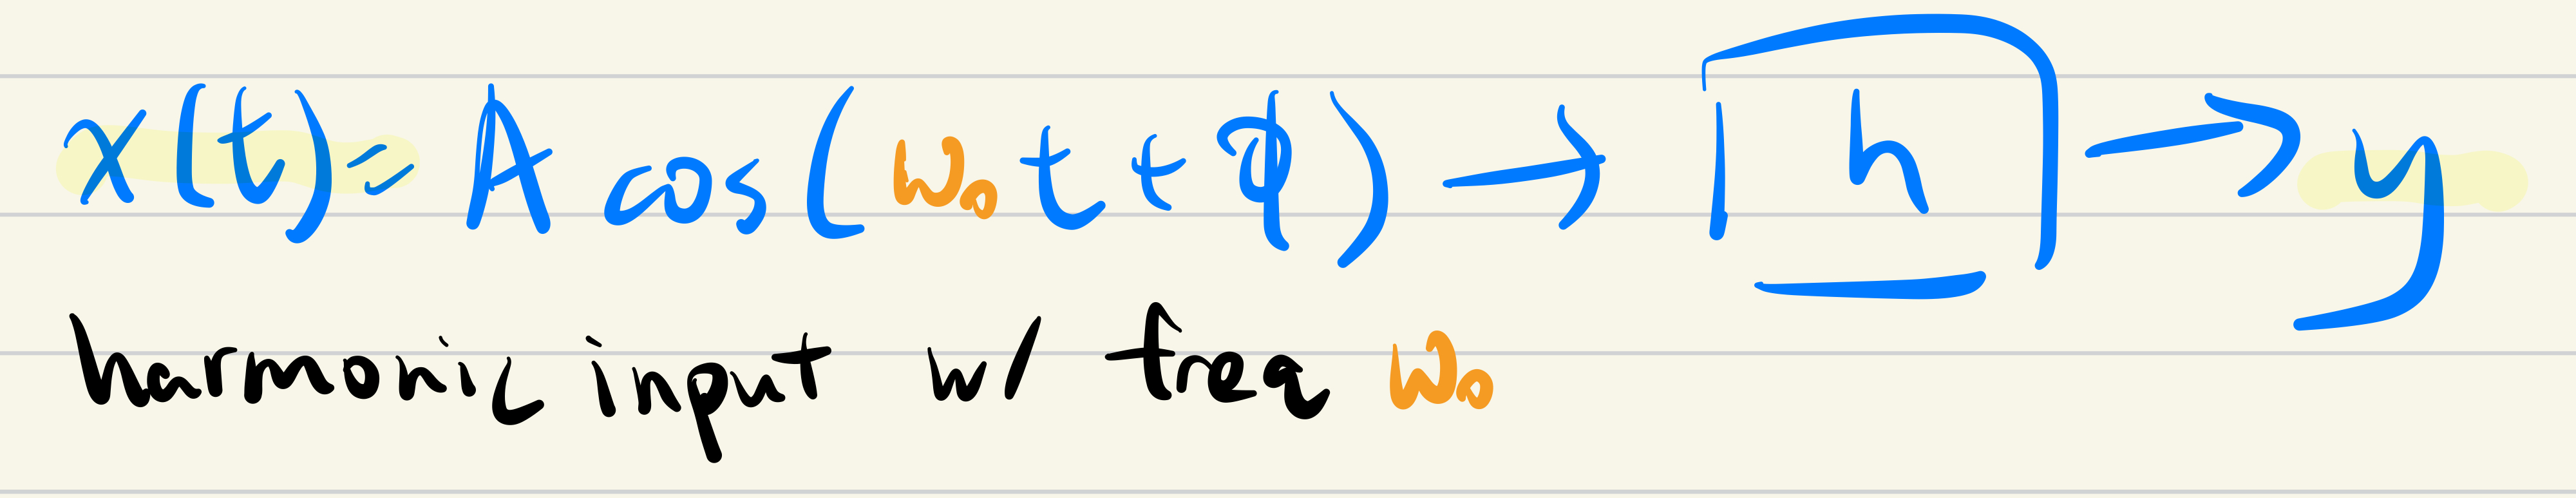 x(t) = A cos(ω₀t + φ) → h → y
harmonic input w/ freq ω₀